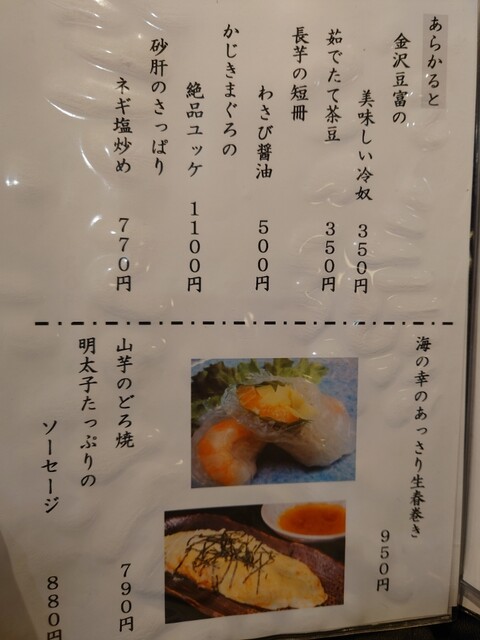 あらかると
金沢豆富の
美味しい冷奴
350円
茹でたて茶豆
350円
長芋の短冊
わさび醤油
500円
かじきまぐろの
絶品ユッケ
1100円
砂肝のさっぱり
ネギ塩炒め
770円
海の幸のあっさり生春巻き
950円
山芋のどろ焼
790円
明太子たっぷりの
ソーセージ
880円